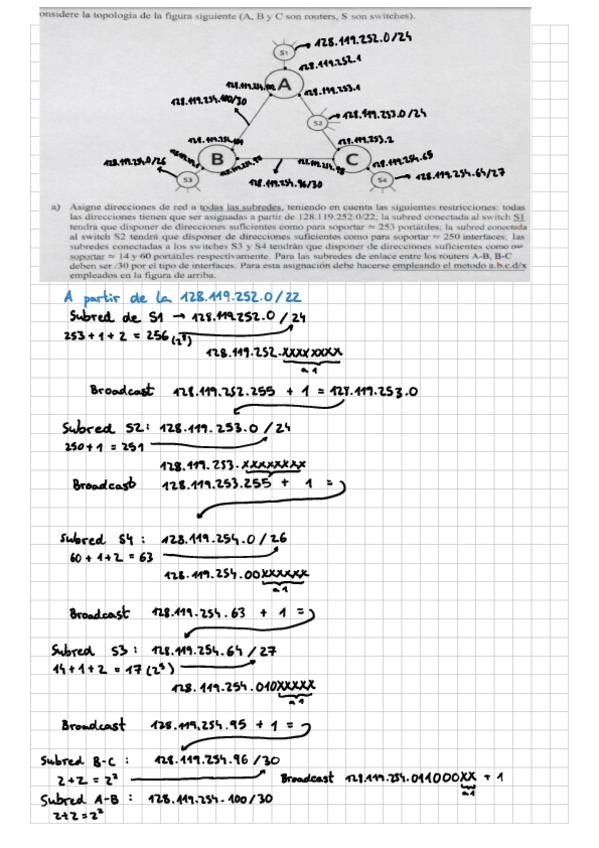 onsidere la topología de la figura siguiente (A, B y C son routers, S son switches).
S1 128.119.252.0/24
128.119.252.1
A
128.119.253.1
128.119.254.100/30
S2 128.119.253.0/24
128.119.253.2
128.119.254.0/26
B
C
128.119.254.65
S3
128.119.254.96/30
S4 128.119.254.64/27
a) Asigne direcciones de red a todas las subredes, teniendo en cuenta las siguientes restricciones: todas
las direcciones tienen que ser asignadas a partir de 128.119.252.0/22; la subred conectada al switch S1
tendra que disponer de direcciones suficientes como para soportar ≈ 253 portátiles; la subred conectada
al switch S2 tendrá que disponer de direcciones suficientes como para soportar ≈ 250 interfaces; las
subredes conectadas a los switches S3 y S4 tendrán que disponer de direcciones suficientes como
soportar ≈ 14 y 60 portátiles respectivamente. Para las subredes de enlace entre los routers A-B, B-C
deben ser /30 por el tipo de interfaces. Para esta asignación debe hacerse empleando el metodo a.b.c.d/x
empleados en la figura de arriba.
A partir de la 128.119.252.0/22
Subred de S1 → 128.119.252.0/24
253+1+2 = 256 (2⁸)
128.119.252.XXXXXXXX
a 1
Broadcast 128.119.252.255 + 1 = 128.119.253.0
Subred S2: 128.119.253.0/24
250+1 = 251
128.119.253.XXXXXXXX
Broadcast 128.119.253.255 + 1 =
Subred S4: 128.119.254.0/26
60+1+2 = 63
128.119.254.00XXXXXX
a 1
Broadcast 128.119.254.63 + 1 =
Subred S3: 128.119.254.64/27
14+1+2 = 17 (2⁵)
128.119.254.010XXXXX
a 1
Broadcast 128.119.254.95 + 1 =
Subred B-C: 128.119.254.96/30
2+2 = 2² Broadcast 128.119.254.011000XX + 1
a 1
Subred A-B: 128.119.254.100/30
2+2 = 2²